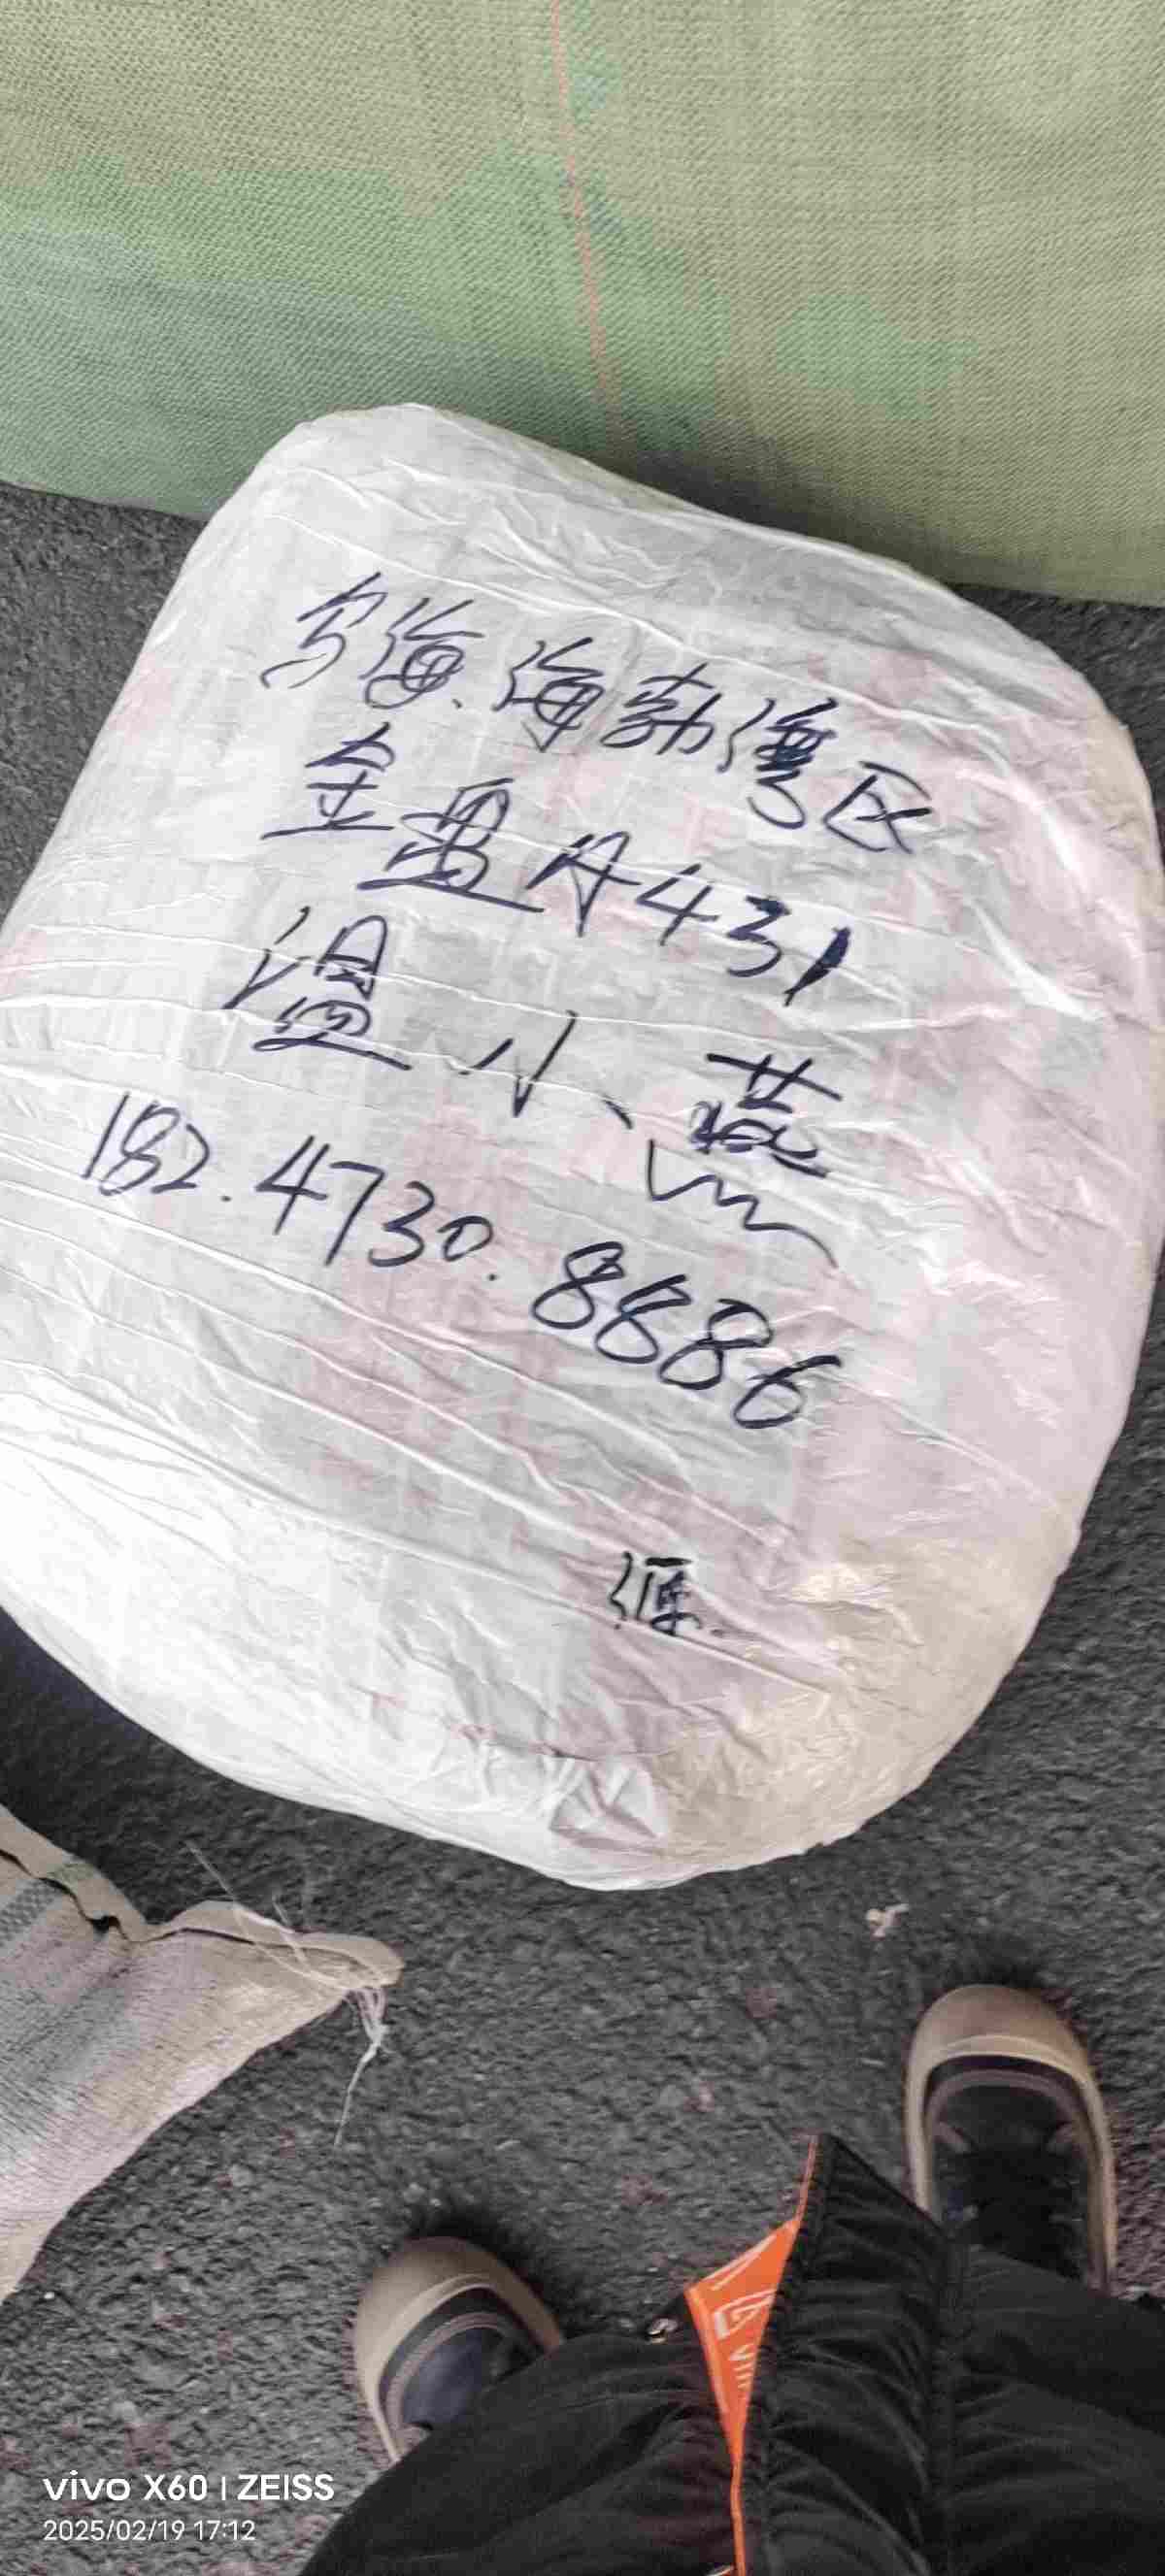 乌海.海勃湾区
金盘A431
温小燕
182.4730.8886
源
vivo X60 | ZEISS
2025/02/19 17:12